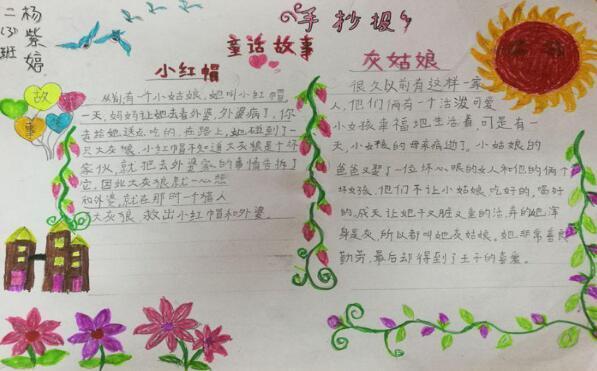 二(3)班
杨紫婷
手抄报
童话故事
故
事
小红帽
从前有一个小姑娘,她叫小红帽,
一天,妈妈让她去看外婆,外婆病了,你
去给她送点吃的,在路上,她碰到了一
只大灰狼,小红帽不知道大灰狼是个坏
家伙,就把去外婆家的事情告诉了
它,因此大灰狼就一心想
和外婆,就在那时一个猎人
大灰狼,救出小红帽和外婆。
灰姑娘
很久以前有这样一家
人,他们俩有一个活泼可爱
小女孩幸福地生活着,可是有一
天,小女孩的母亲病逝了。小姑娘的
爸爸又娶了一位坏心眼的女人和他的俩个
坏女孩,他们不让小姑娘吃好的,喝好
的,成天让她干又脏又重的活,弄的她浑
身是灰,所以都叫她灰姑娘。她非常善良
勤劳,最后却得到了王子的喜爱。